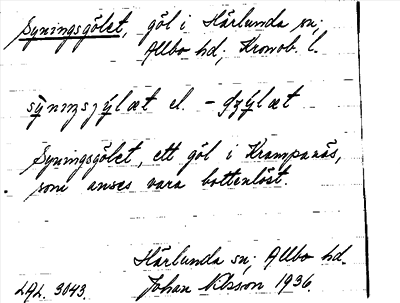 Syningsgölet, göl i Härlunda sn;
Allbo hd; Kronob. l.
sỳnıŋsjýlæt el. -gjýlæt
Syningsgölet, ett göl i Krampanäs,
som anses vara bottenlöst.
Härlunda sn; Allbo hd.
LAL. 3043. Johan Nilsson 1936.